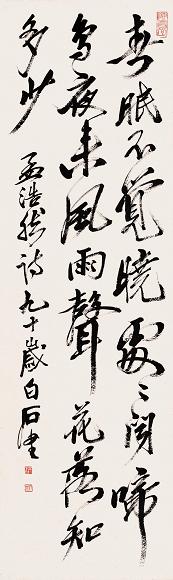 春眠不覺曉處〻闻啼
鸟夜来風雨聲花落知
多少
孟浩然诗九十歲白石書